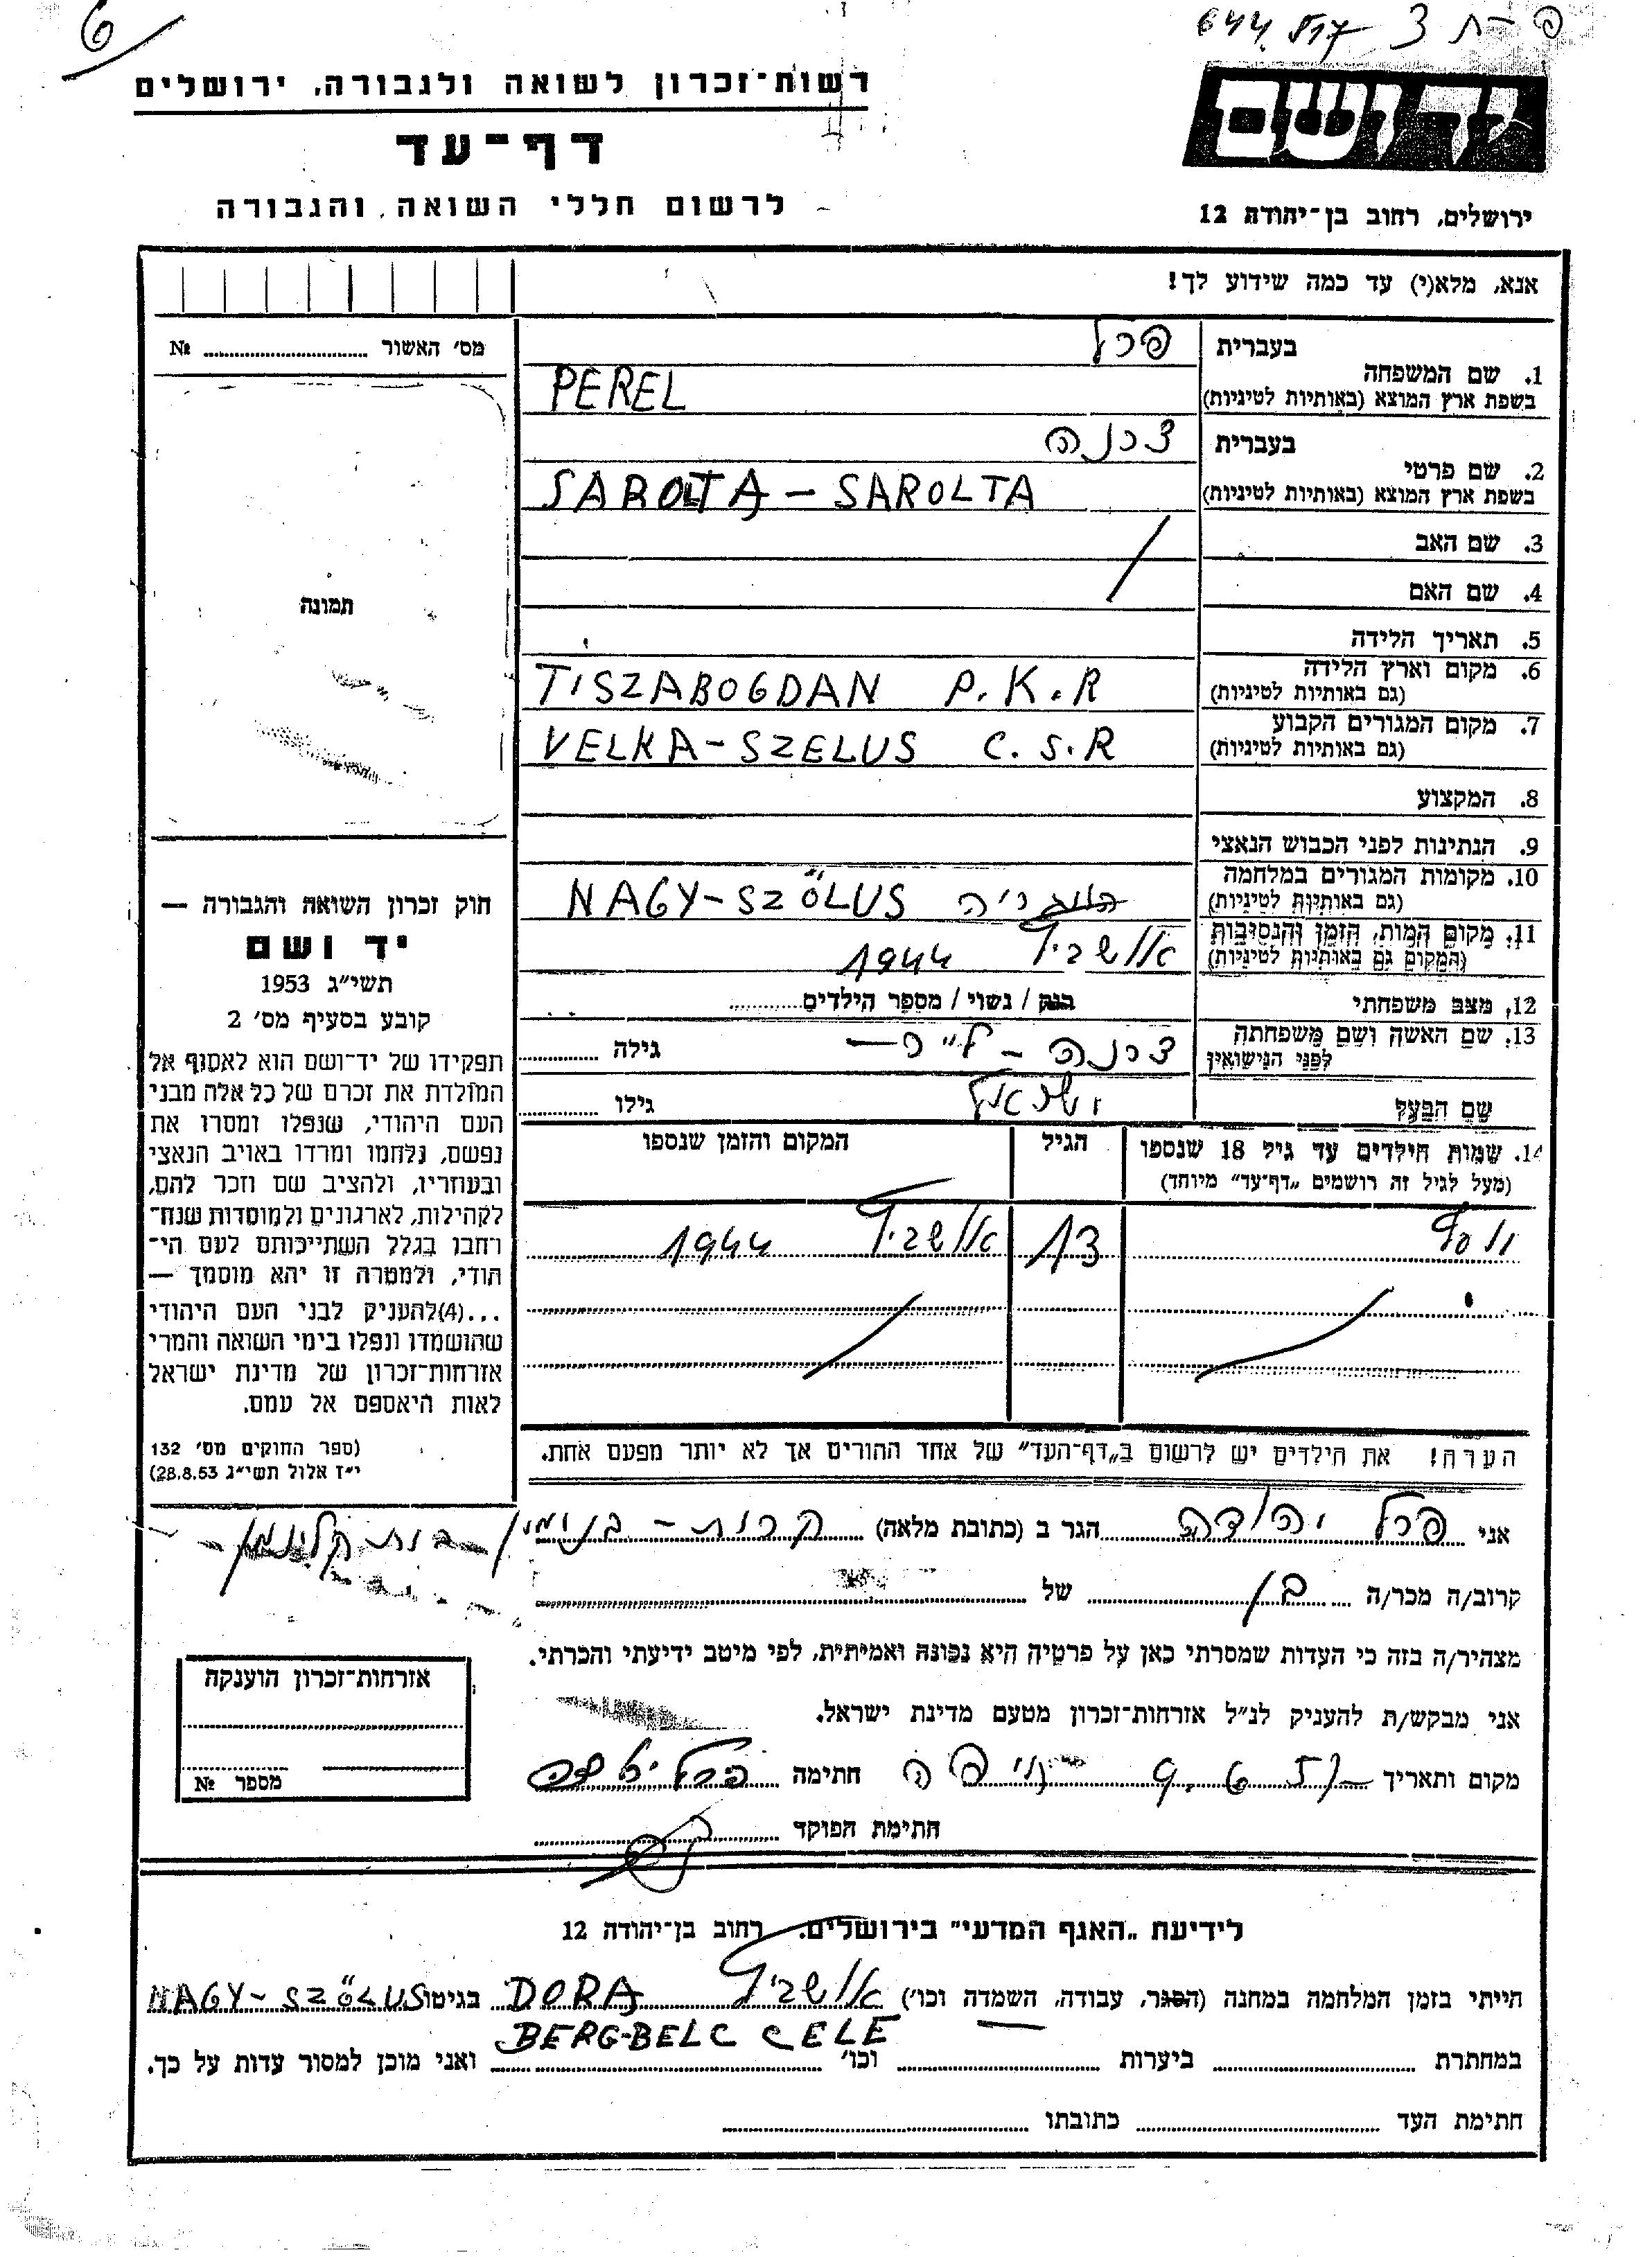 6
פ-ת 3 644
רשות־זכרון לשואה ולגבורה, ירושלים
דף־עד
לרשום חללי השואה והגבורה
יד ושם
ירושלים, רחוב בן־יהודה 12
אנא, מלא(י) עד כמה שידוע לך!
מס׳ האשור № ........
תמונה
1. שם המשפחה בעברית פרל
בשפת ארץ המוצא (באותיות לטיניות) PEREL
2. שם פרטי בעברית
בשפת ארץ המוצא (באותיות לטיניות) SAROLTA - SAROLTA
3. שם האב
4. שם האם
5. תאריך הלידה
6. מקום וארץ הלידה
(גם באותיות לטיניות) TISZABOGDAN P.K.R
7. מקום המגורים הקבוע
(גם באותיות לטיניות) VELKA-SZELUS C.S.R
8. המקצוע
9. הנתינות לפני הכבוש הנאצי
10. מקומות המגורים במלחמה
(גם באותיות לטיניות) הונגריה NAGY-SZŐLUS
11. מקום המות, הזמן והנסיבות
(המקום גם באותיות לטיניות) אושביץ 1944
12. מצב משפחתי רווק / נשוי / מספר הילדים........
13. שם האשה ושם משפחתה
לפני הנישואין גילה ........
שם הבעל גילו ........
14. שמות הילדים עד גיל 18 שנספו הגיל המקום והזמן שנספו
(מעל לגיל זה רושמים „דף־עד” מיוחד)
יוסף 13 אושביץ 1944
הערה! את הילדים יש לרשום ב„דף־העד” של אחד ההורים אך לא יותר מפעם אחת.
חוק זכרון השואה והגבורה —
יד ושם
תשי״ג 1953
קובע בסעיף מס׳ 2
תפקידו של יד־ושם הוא לאסוף אל
המולדת את זכרם של כל אלה מבני
העם היהודי, שנפלו ומסרו את
נפשם, נלחמו ומרדו באויב הנאצי
ובעוזריו, ולהציב שם וזכר להם,
לקהילות, לארגונים ולמוסדות שנח־
רחבו בגלל השתייכותם לעם הי־
הודי, ולמטרה זו יהא מוסמך —
...(4) להעניק לבני העם היהודי
שהושמדו ונפלו בימי השואה והמרי
אזרחות־זכרון של מדינת ישראל
לאות היאספם אל עמם.
(ספר החוקים מס׳ 132
י״ז אלול תשי״ג 28.8.53)
אני פרל יהודה הגר ב (כתובת מלאה) קרית - בנימין
קרוב/ה מכר/ה בן של ........
מצהיר/ה בזה כי העדות שמסרתי כאן על פרטיה היא נכונה ואמיתית, לפי מיטב ידיעתי והכרתי.
אני מבקש/ת להעניק לנ״ל אזרחות־זכרון מטעם מדינת ישראל.
מקום ותאריך חיפה חתימה פרל יהודה
חתימת הפוקד
אזרחות־זכרון הוענקה
מספר №
לידיעת „האגף המדעי” בירושלים, רחוב בן־יהודה 12
חייתי בזמן המלחמה במחנה (הסגר, עבודה, השמדה וכו׳) אושביץ DORA בגיטו NAGY-SZŐLUS
BERG-BELC CELE
במחתרת ........ ביערות ........ וכו׳ ........ ואני מוכן למסור עדות על כך.
חתימת העד ........ כתובתו ........